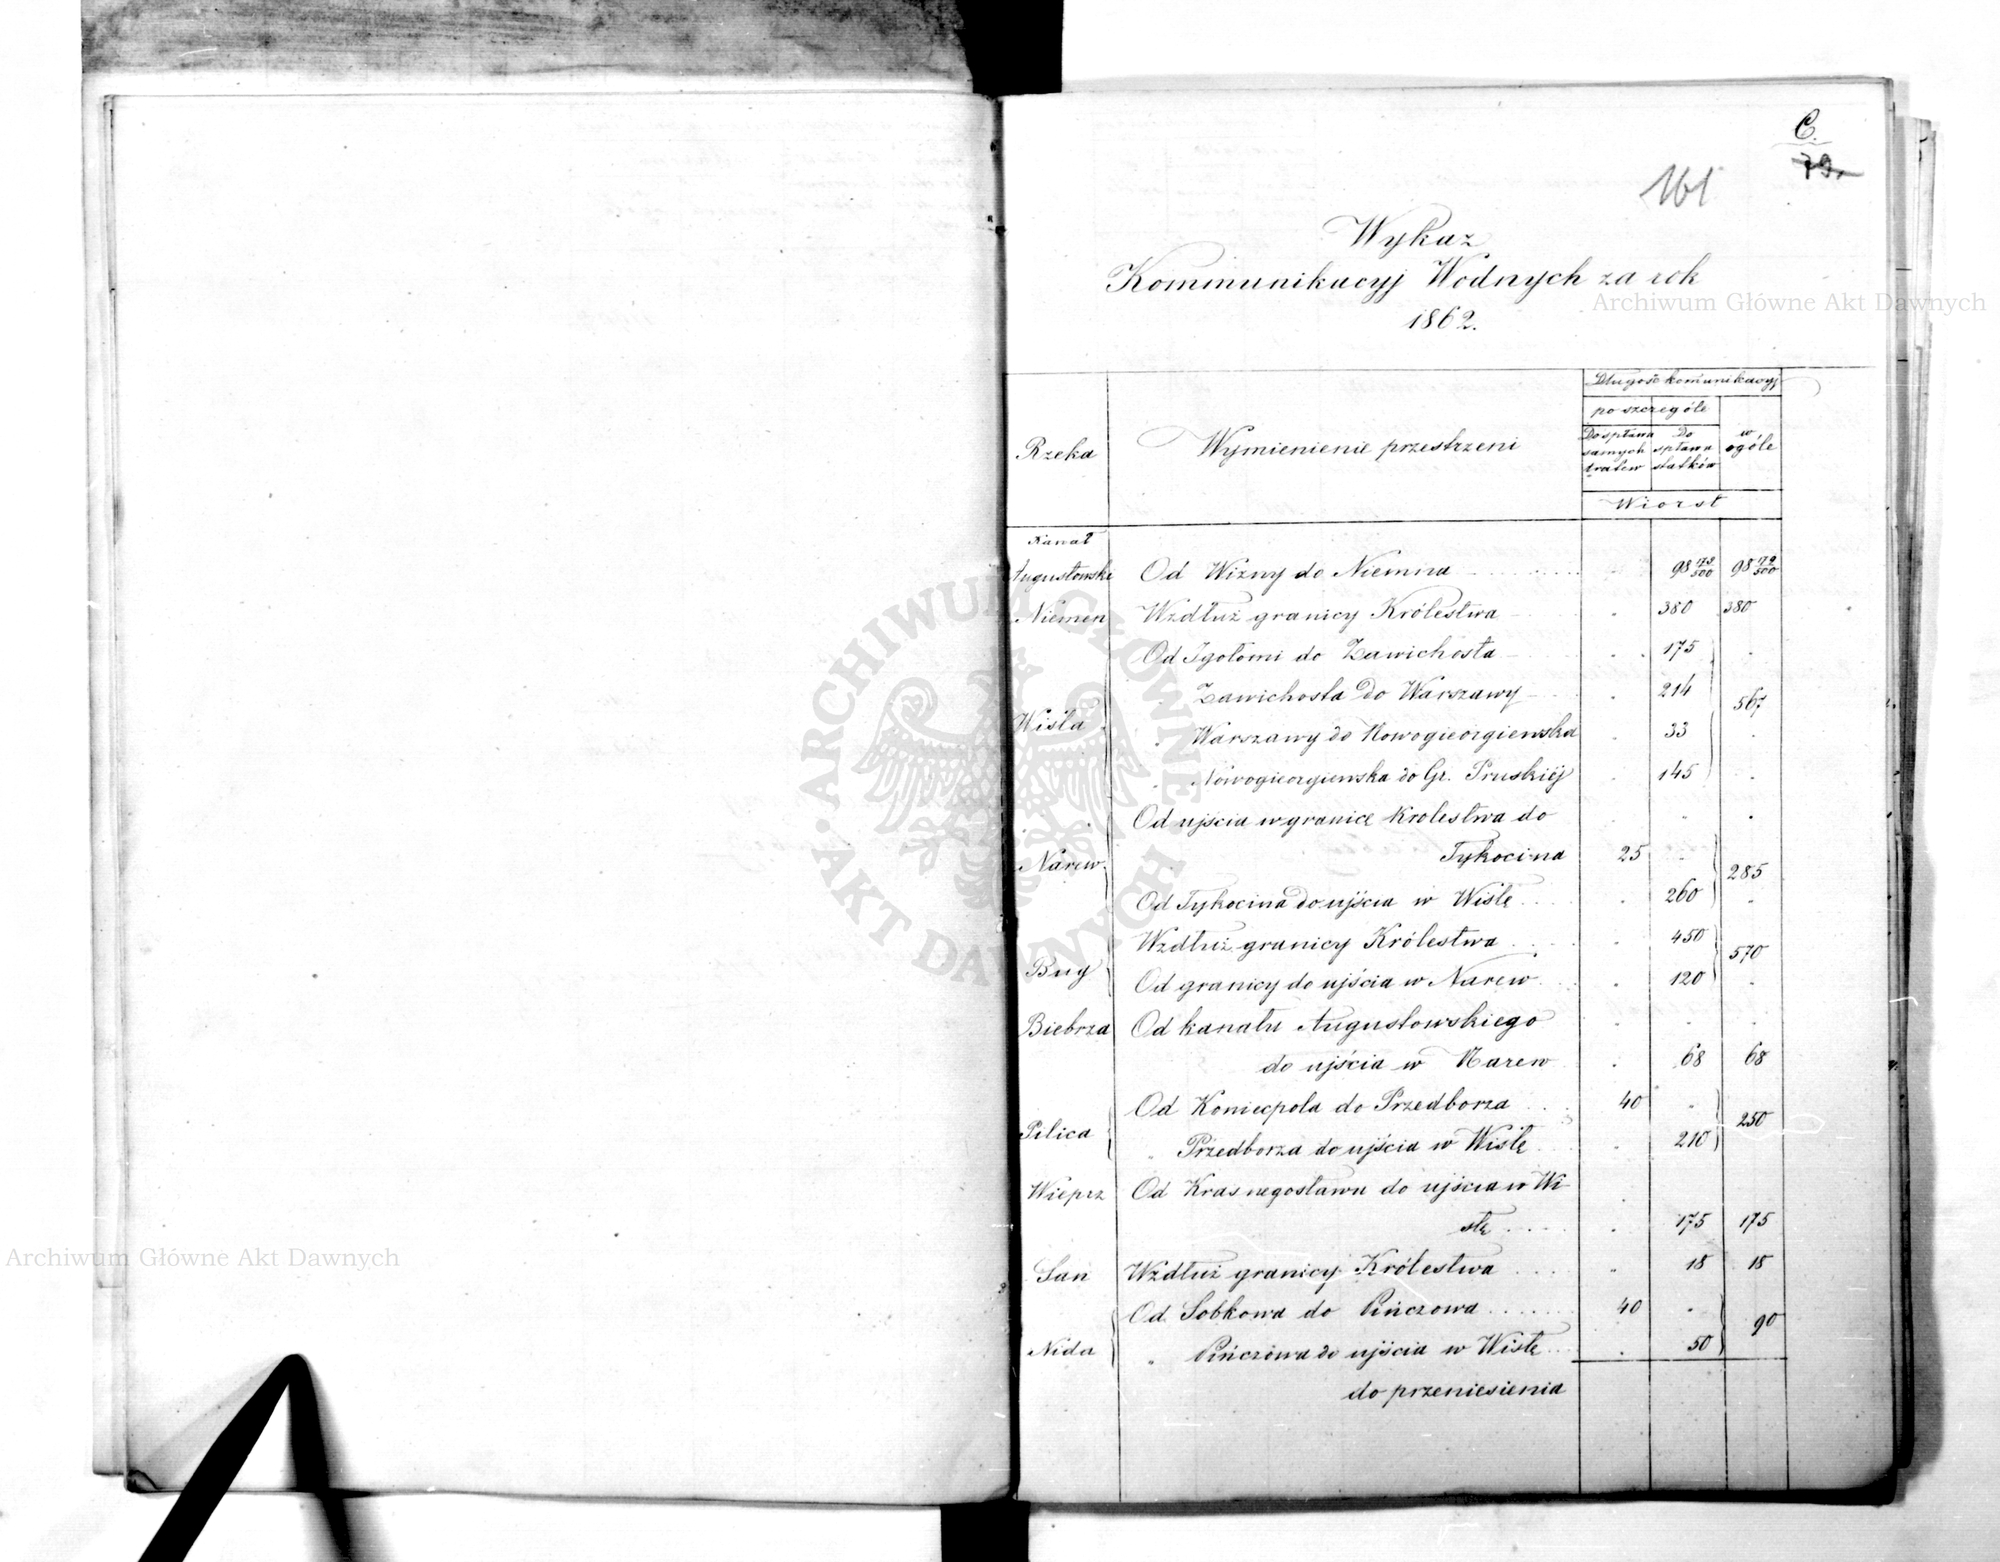 C.
79.
161
Wykaz
Kommunikacyj Wodnych za rok
1862.
Rzeka
Wymienienie przestrzeni
Długość komunikacyj
poszczególe
Do spławu samych tratew
Do spławu statków
w ogóle
Wiorst
Kanał
Augustowski Od Wizny do Niemna 98 73/500 98 73/500
Niemen Wzdłuż granicy Królestwa 380 380
Od Igołomi do Zawichosta 175
" Zawichosta Do Warszawy 214 567
Wisła " Warszawy do Nowogieorgiewska 33
" Nowogieorgiewska do Gr. Pruskiéj 145
Od ujścia w granice Krolestwa do
Narew Tykocina 25 285
Od Tykocina do ujścia w Wisłę 260
Wzdłuż granicy Królestwa 450 570
Bug Od granicy do ujścia w Narew 120
Biebrza Od kanału Augustowskiego
do ujścia w Narew 68 68
Od Koniecpola do Przedborza 40 250
Pilica " Przedborza do ujścia w Wisłę 210
Wieprz Od Krasnegostawu do ujścia w Wi-
słę 175 175
San Wzdłuż granicy Królestwa 18 18
Od Sobkowa do Pińczowa 40 90
Nida " Pińczowa do ujścia w Wisłę 50
do przeniesienia
Archiwum Główne Akt Dawnych
Archiwum Główne Akt Dawnych
ARCHIWUM GŁÓWNE
AKT DAWNYCH